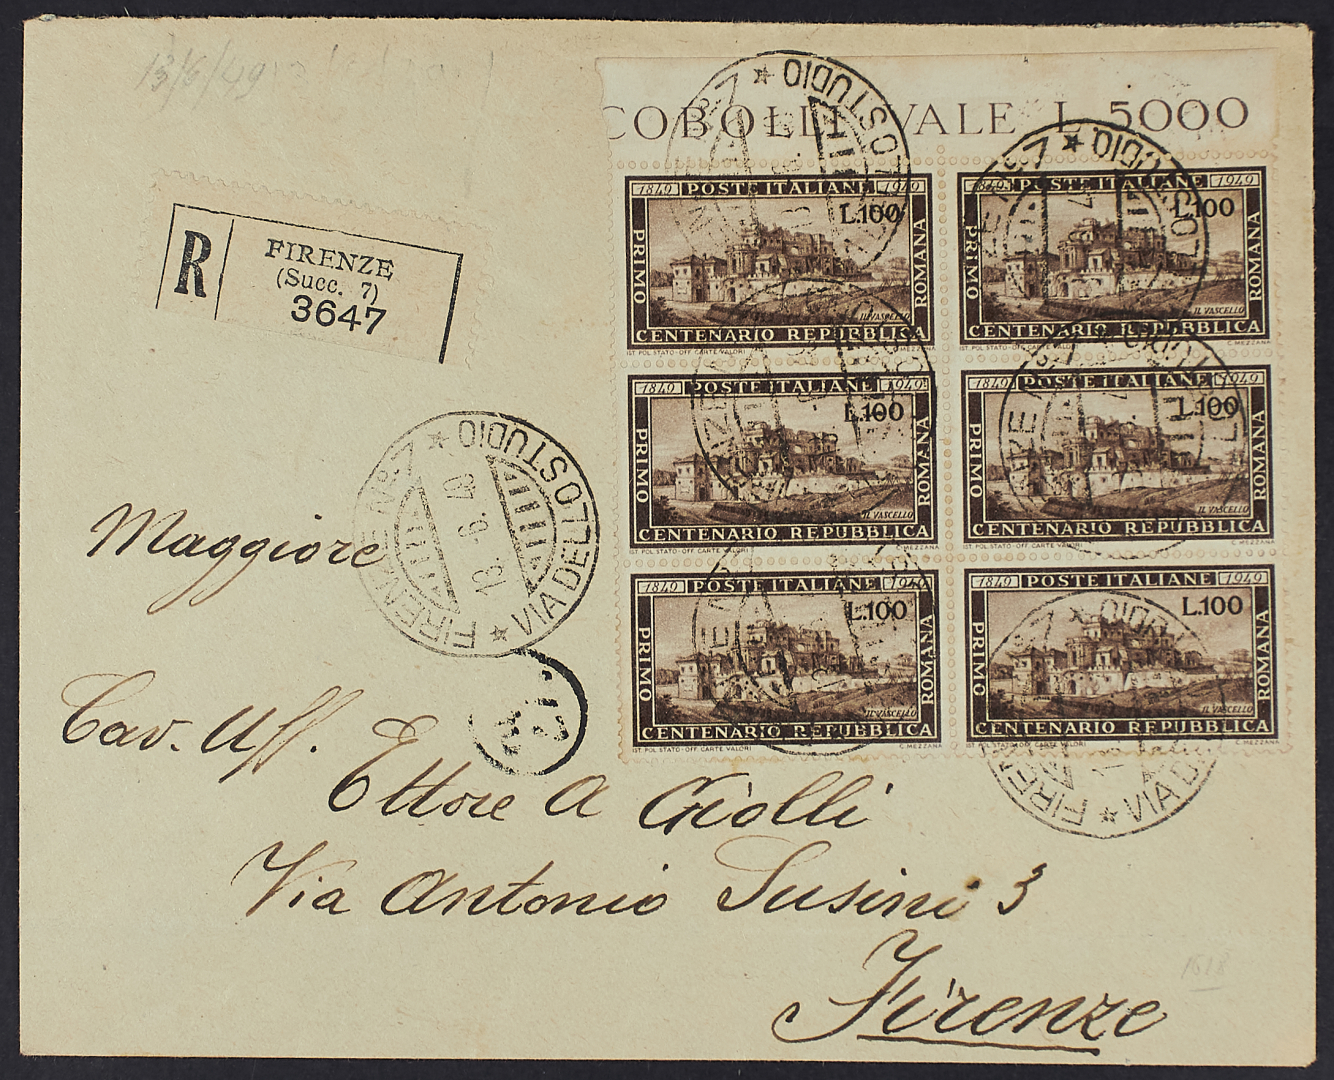 13/6/49
COBOLLI VALE L. 5000
R
FIRENZE
(Succ. 7)
3647
1849 POSTE ITALIANE 1949
L.100
PRIMO
ROMANA
IL VASCELLO
CENTENARIO REPUBBLICA
IST. POL. STATO-OFF. CARTE VALORI C. MEZZANA
1849 POSTE ITALIANE 1949
L.100
PRIMO
ROMANA
IL VASCELLO
CENTENARIO REPUBBLICA
IST. POL. STATO-OFF. CARTE VALORI C. MEZZANA
1849 POSTE ITALIANE 1949
L.100
PRIMO
ROMANA
IL VASCELLO
CENTENARIO REPUBBLICA
IST. POL. STATO-OFF. CARTE VALORI C. MEZZANA
1849 POSTE ITALIANE 1949
L.100
PRIMO
ROMANA
IL VASCELLO
CENTENARIO REPUBBLICA
IST. POL. STATO-OFF. CARTE VALORI C. MEZZANA
1849 POSTE ITALIANE 1949
L.100
PRIMO
ROMANA
IL VASCELLO
CENTENARIO REPUBBLICA
IST. POL. STATO-OFF. CARTE VALORI C. MEZZANA
1849 POSTE ITALIANE 1949
L.100
PRIMO
ROMANA
CENTENARIO REPUBBLICA
IST. POL. STATO-OFF. CARTE VALORI C. MEZZANA
FIRENZE N° 7 * VIA DELLO STUDIO *
13.6.49
Maggiore
Cav. Uff.
Ettore A Giolli
Via Antonio Susini 3
Firenze
1618